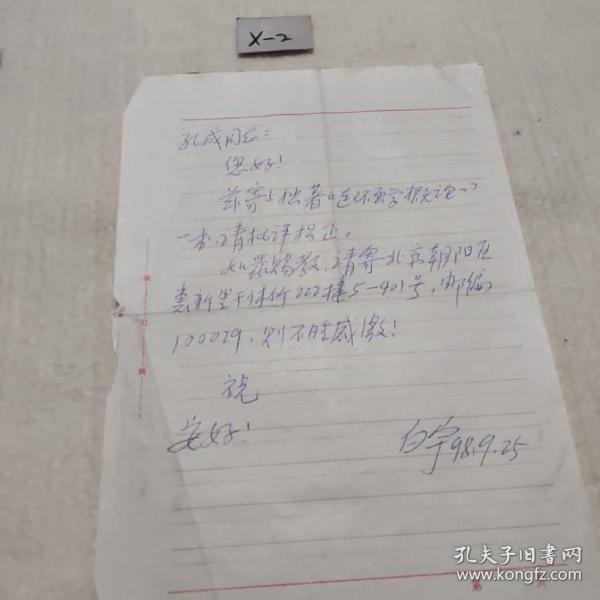 X-2
孔成同志：
您好！
兹寄上拙著《连环画学概论》
一书，请批评指正。
如蒙赐教，请寄北京朝阳区
惠新里干休所222楼5-401号，邮编
100029，则不胜感激！
祝
安好！
白宇98.9.25
装订线
第
孔夫子旧书网
www.kongfz.com